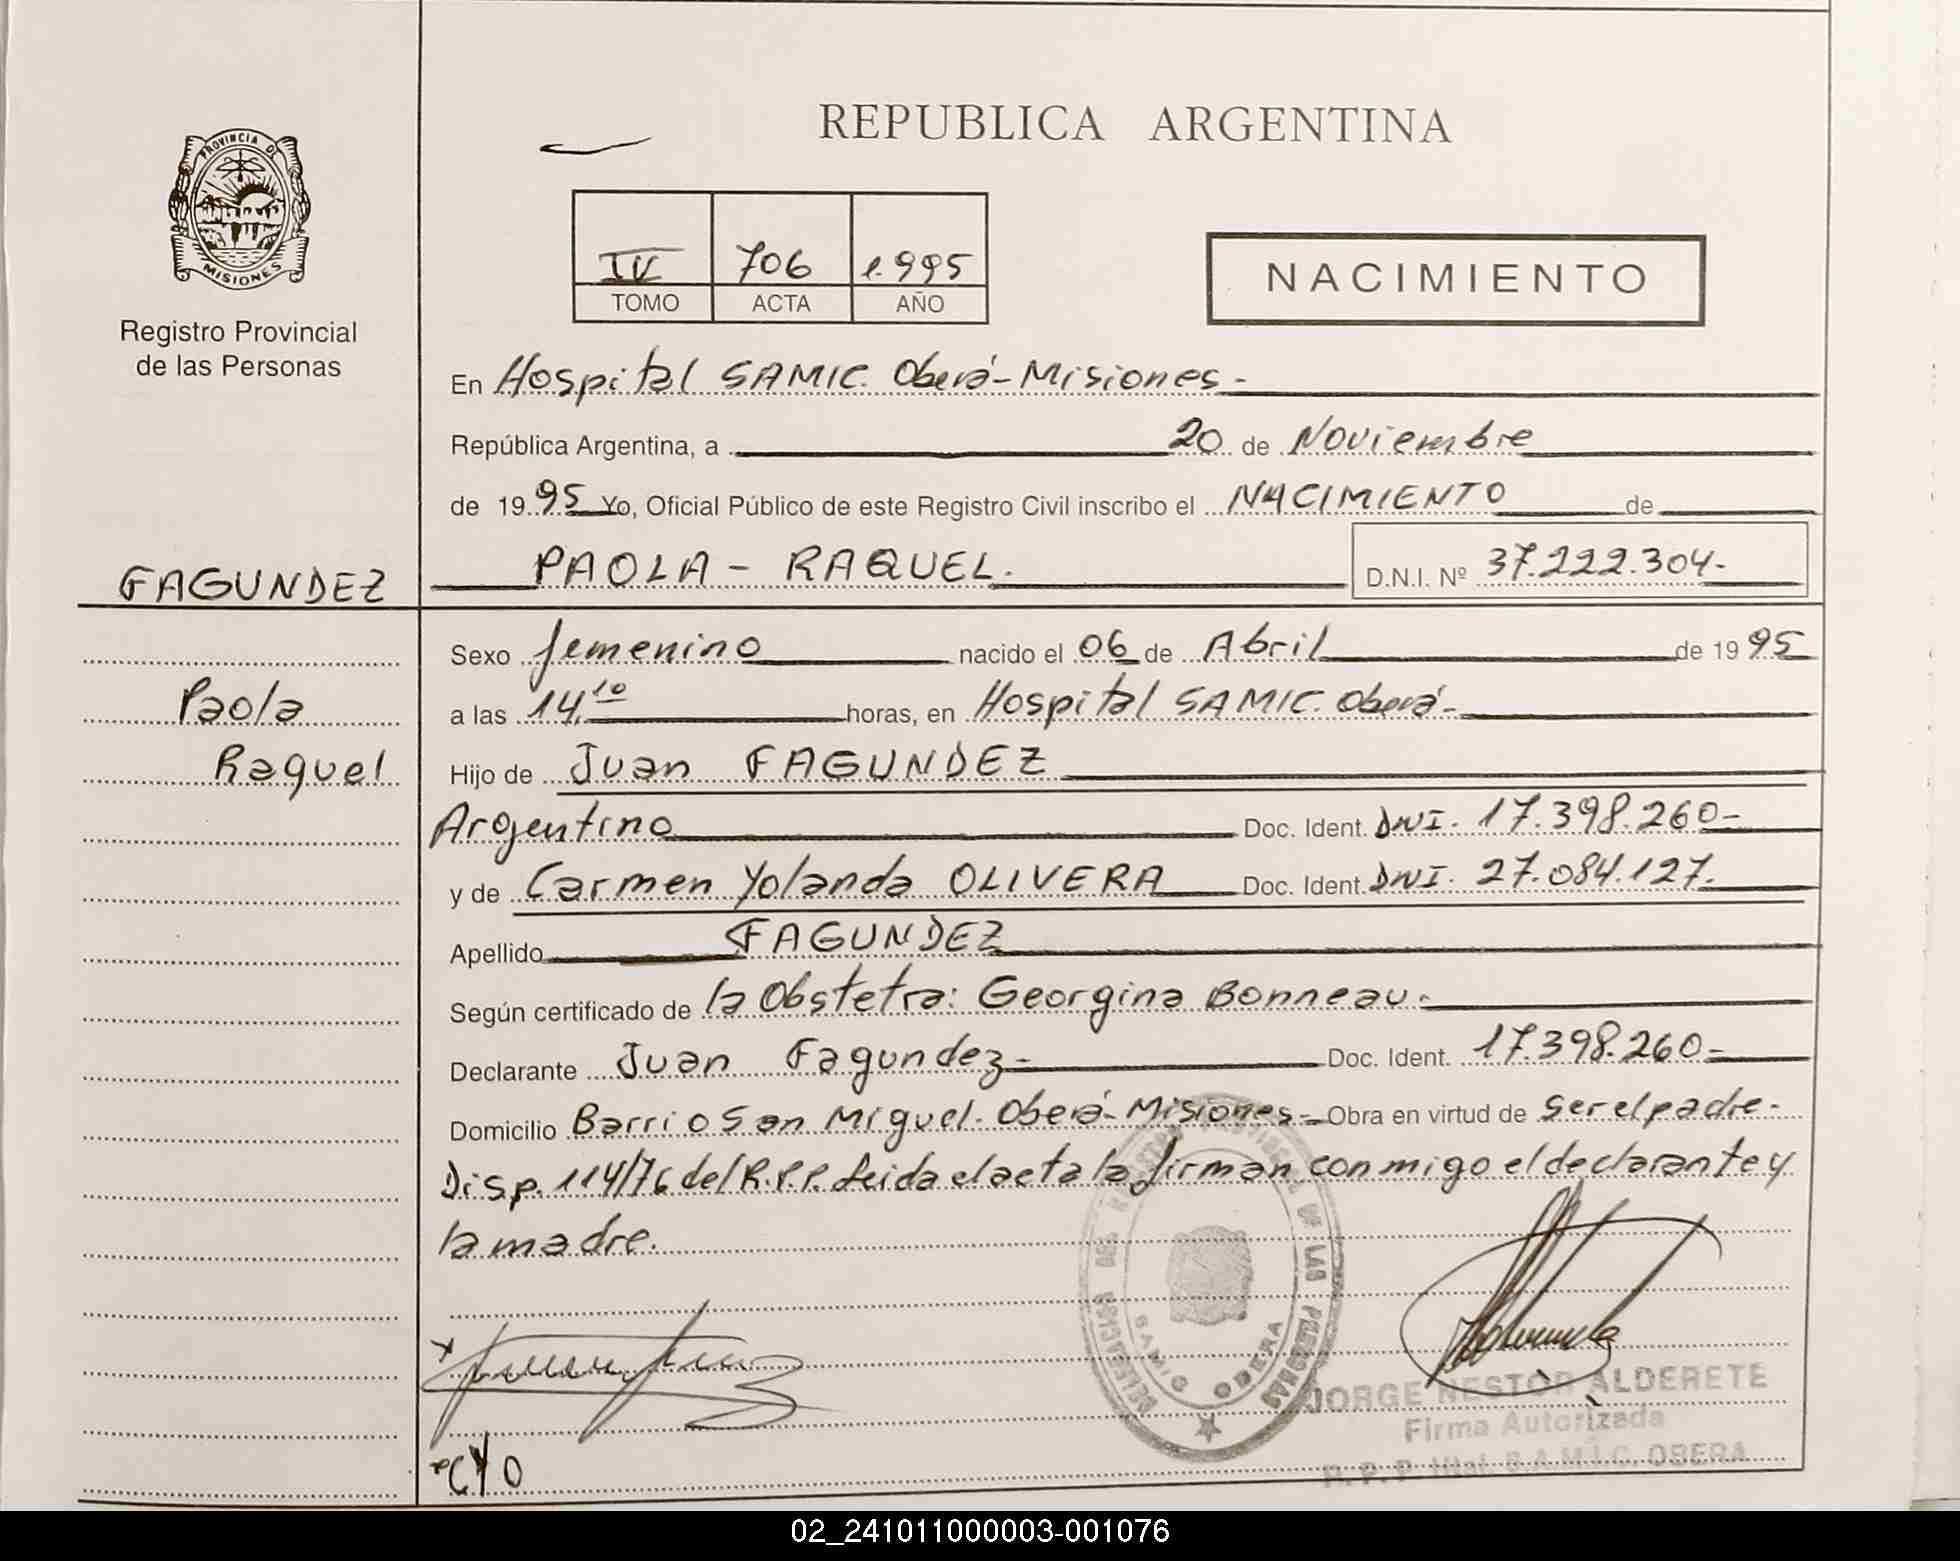 REPUBLICA ARGENTINA
PROVINCIA DE
MISIONES
Registro Provincial
de las Personas
IV 706 1.995
TOMO ACTA AÑO
NACIMIENTO
En Hospital SAMIC. Oberá-Misiones-
República Argentina, a 20 de Noviembre
de 1995 Yo, Oficial Público de este Registro Civil inscribo el NACIMIENTO de
FAGUNDEZ
PAOLA - RAQUEL.
D.N.I. Nº 37.222.304-
Paola
Raquel
Sexo femenino nacido el 06 de Abril de 1995
a las 14,10 horas, en Hospital SAMIC. Oberá-
Hijo de Juan FAGUNDEZ
Argentino Doc. Ident. DNI. 17.398.260-
y de Carmen Yolanda OLIVERA Doc. Ident. DNI. 27.084.127.
Apellido FAGUNDEZ
Según certificado de la Obstetra: Georgina Bonneau.
Declarante Juan Fagundez- Doc. Ident. 17.398.260-
Domicilio Barrio San Miguel. Oberá-Misiones- Obra en virtud de ser el padre-
Disp. 114/76 del R.P.P. leida el acta la firman conmigo el declarante y
la madre.
DELEGACION DEL REGISTRO PROVINCIAL DE LAS PERSONAS
SAMIC OBERA
JORGE NESTOR ALDERETE
Firma Autorizada
R. P. P. Htal. S.A.M.I.C. OBERA
CYO
02_241011000003-001076